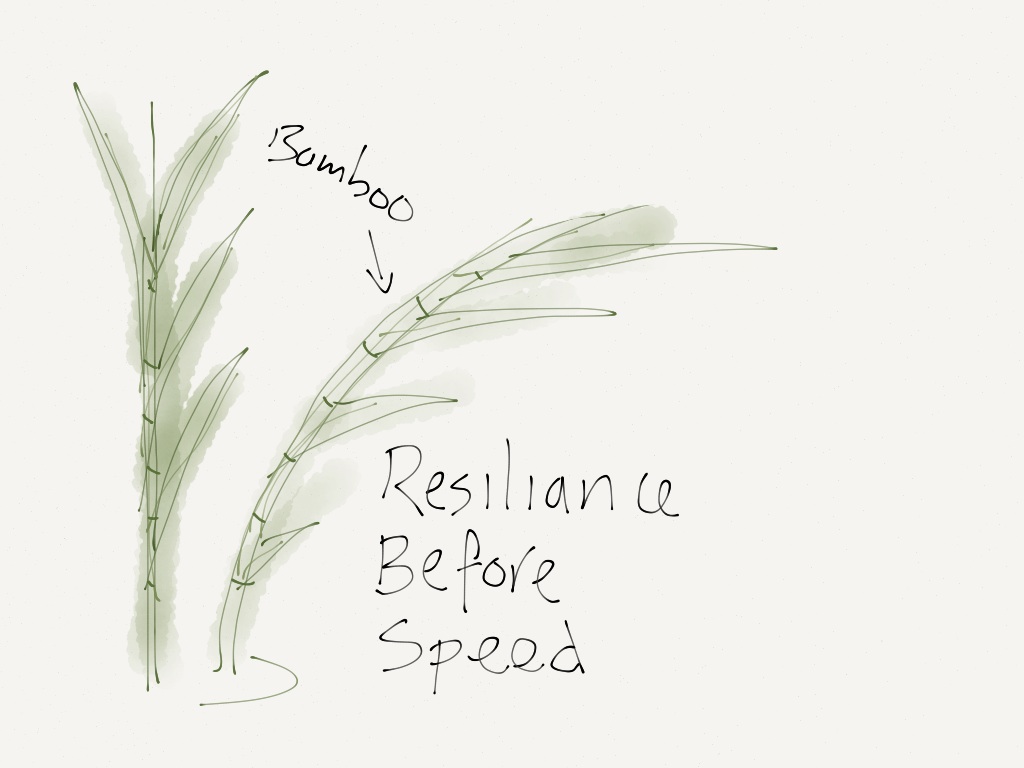 Bamboo
Resiliance
Before
Speed